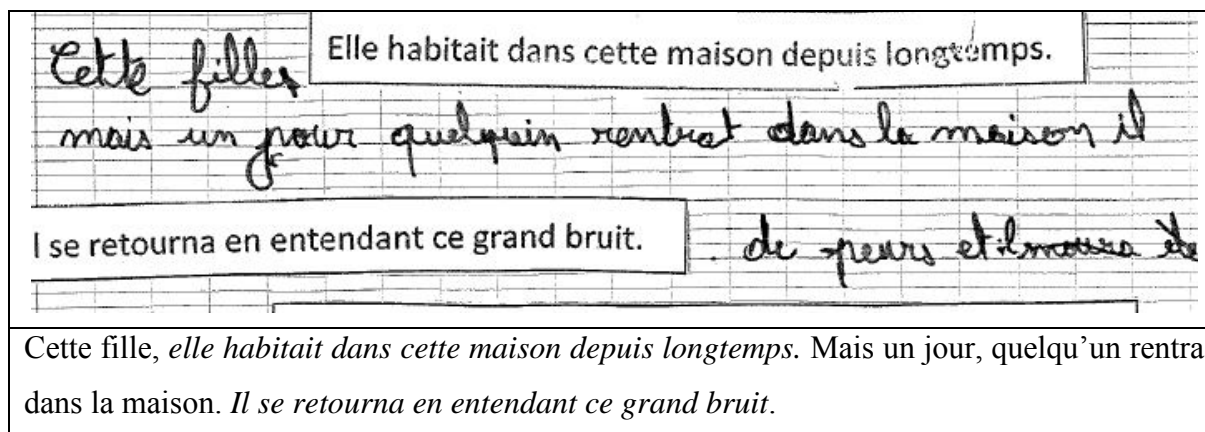 Cette filles Elle habitait dans cette maison depuis longtemps.
mais un jour quelquin rentrat dans la maison il
l se retourna en entendant ce grand bruit. de peurs et il moura de
Cette fille, elle habitait dans cette maison depuis longtemps. Mais un jour, quelqu’un rentra
dans la maison. Il se retourna en entendant ce grand bruit.